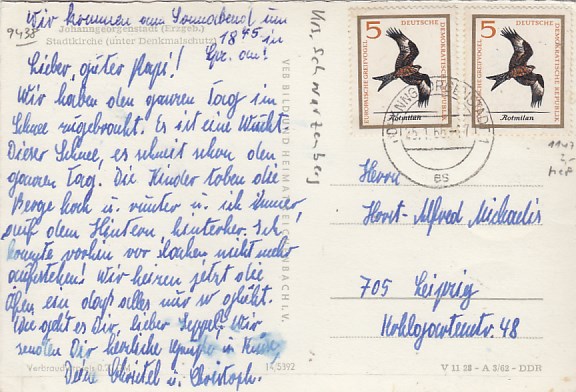 Wir kommen am Sonnabend um
18⁴⁵ in
Lpz. an!
9438
Johanngeorgenstadt (Erzgeb.)
Stadtkirche (unter Denkmalschutz)
Lieber, guter Paps!
Wir haben den ganzen Tag im
Schnee zugebracht. Es ist eine Wucht.
Dieser Schnee, es schneit schon den
ganzen Tag. Die Kinder toben die
Berge hoch u. runter u. ich immer
auf dem Hintern hinterher. Ich
konnte vorhin vor Lachen nicht mehr
aufstehen! Wir heizen jetzt die
Öfen ein daß alles nur so glüht.
Wie geht es Dir, lieber Seppel? Wir
senden Dir herzliche Grüße u. Küsse,
Deine Christel u. Christoph.
Verbraucherpreis 0,20 MDN
14/5392
VEB BILD UND HEIMAT REICHENBACH I. V.
Krs. Schwarzenberg
5
DEUTSCHE
DEMOKRATISCHE REPUBLIK
EUROPÄISCHE GREIFVÖGEL
Rotmilan
5
DEUTSCHE
DEMOKRATISCHE REPUBLIK
EUROPÄISCHE GREIFVÖGEL
Rotmilan
JOHANNGEORGENSTADT 1
as
Herrn
Horst-Alfred Michaelis
705 Leipzig
Kohlgartenstr. 48
V 11 28 - A 3/62 - DDR